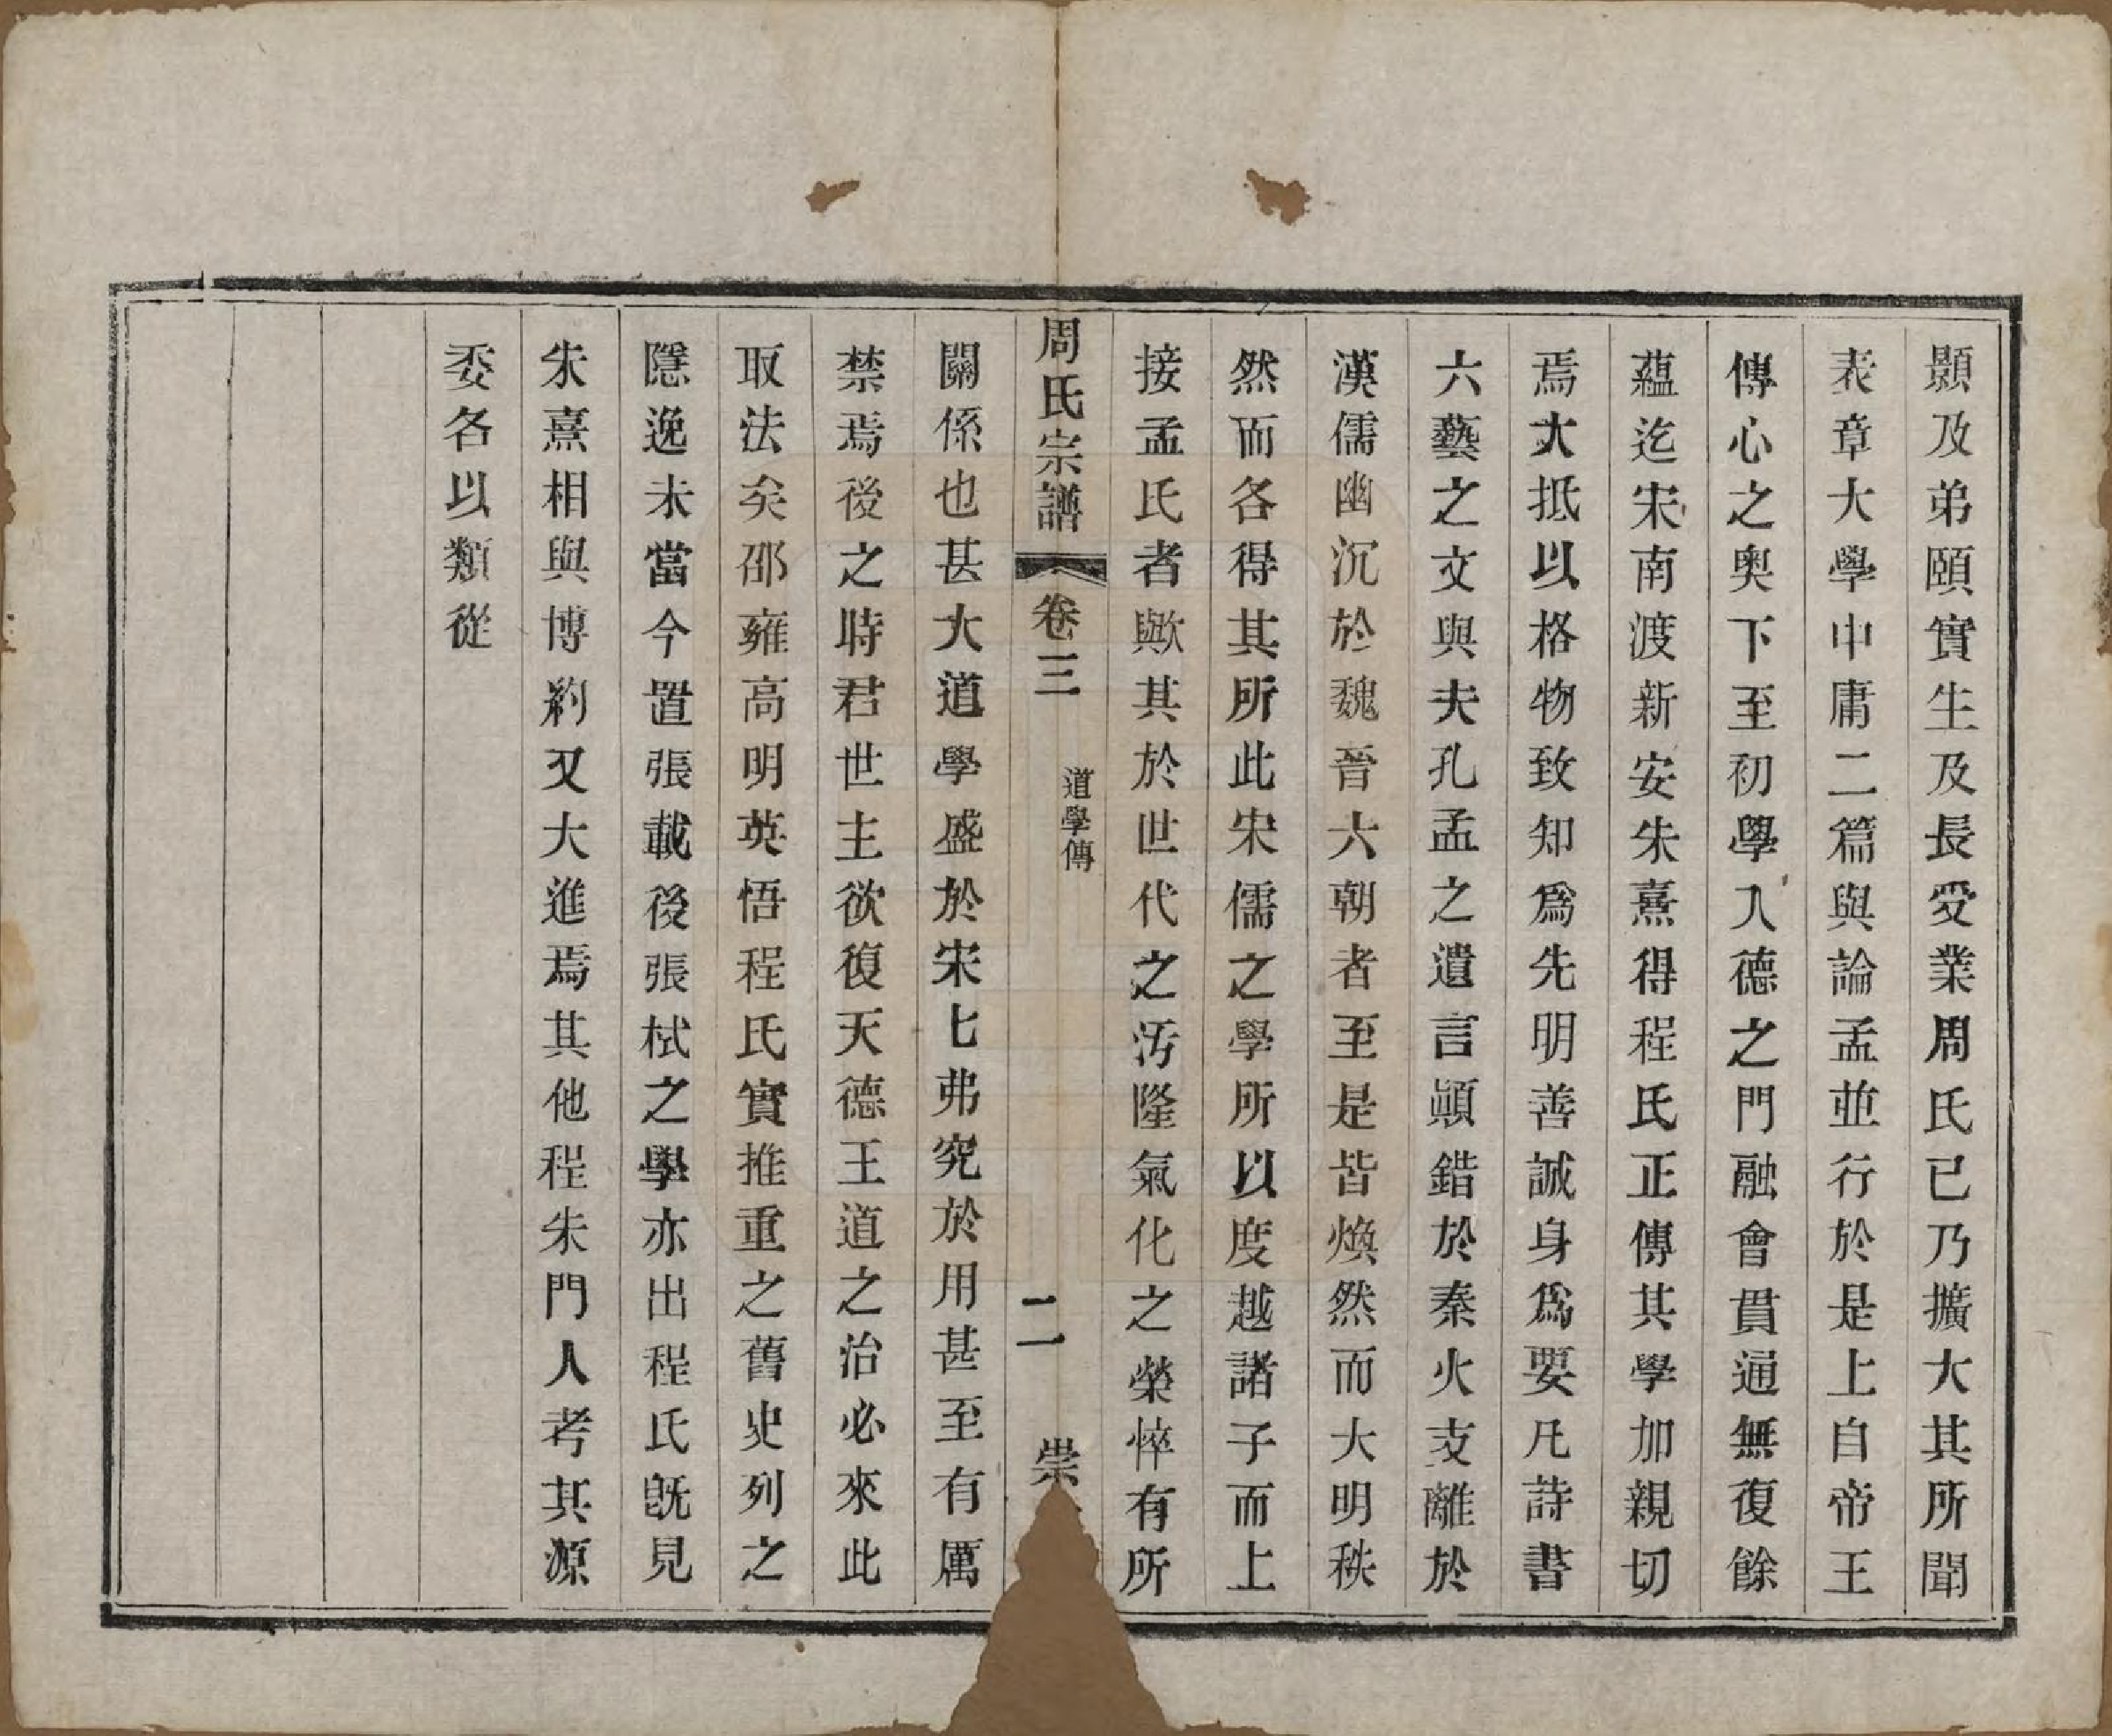 顥及弟頤實生及長受業周氏已乃擴大其所聞
表章大學中庸二篇與論孟並行於是上自帝王
傳心之奧下至初學入德之門融會貫通無復餘
蘊迄宋南渡新安朱熹得程氏正傳其學加親切
焉大抵以格物致知爲先明善誠身爲要凡詩書
六藝之文與夫孔孟之遺言顚錯於秦火支離於
漢儒幽沉於魏晉六朝者至是皆煥然而大明秩
然而各得其所此宋儒之學所以度越諸子而上
接孟氏者歟其於世代之汚隆氣化之榮悴有所
周氏宗譜 卷三 道學傳 二 崇
關係也甚大道學盛於宋七弗究於用甚至有厲
禁焉後之時君世主欲復天德王道之治必來此
取法矣邵雍高明英悟程氏實推重之舊史列之
隱逸未當今置張載後張栻之學亦出程氏旣見
朱熹相與博約又大進焉其他程朱門人考其源
委各以類從